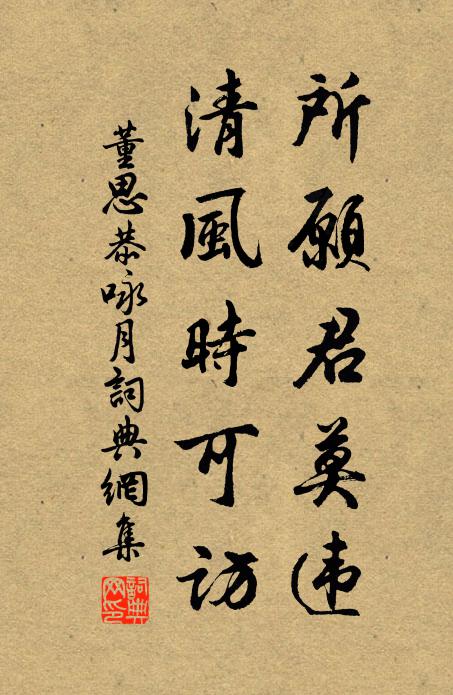 所願君莫违
清風時可訪
董思恭咏月詞典網集
詞典网印